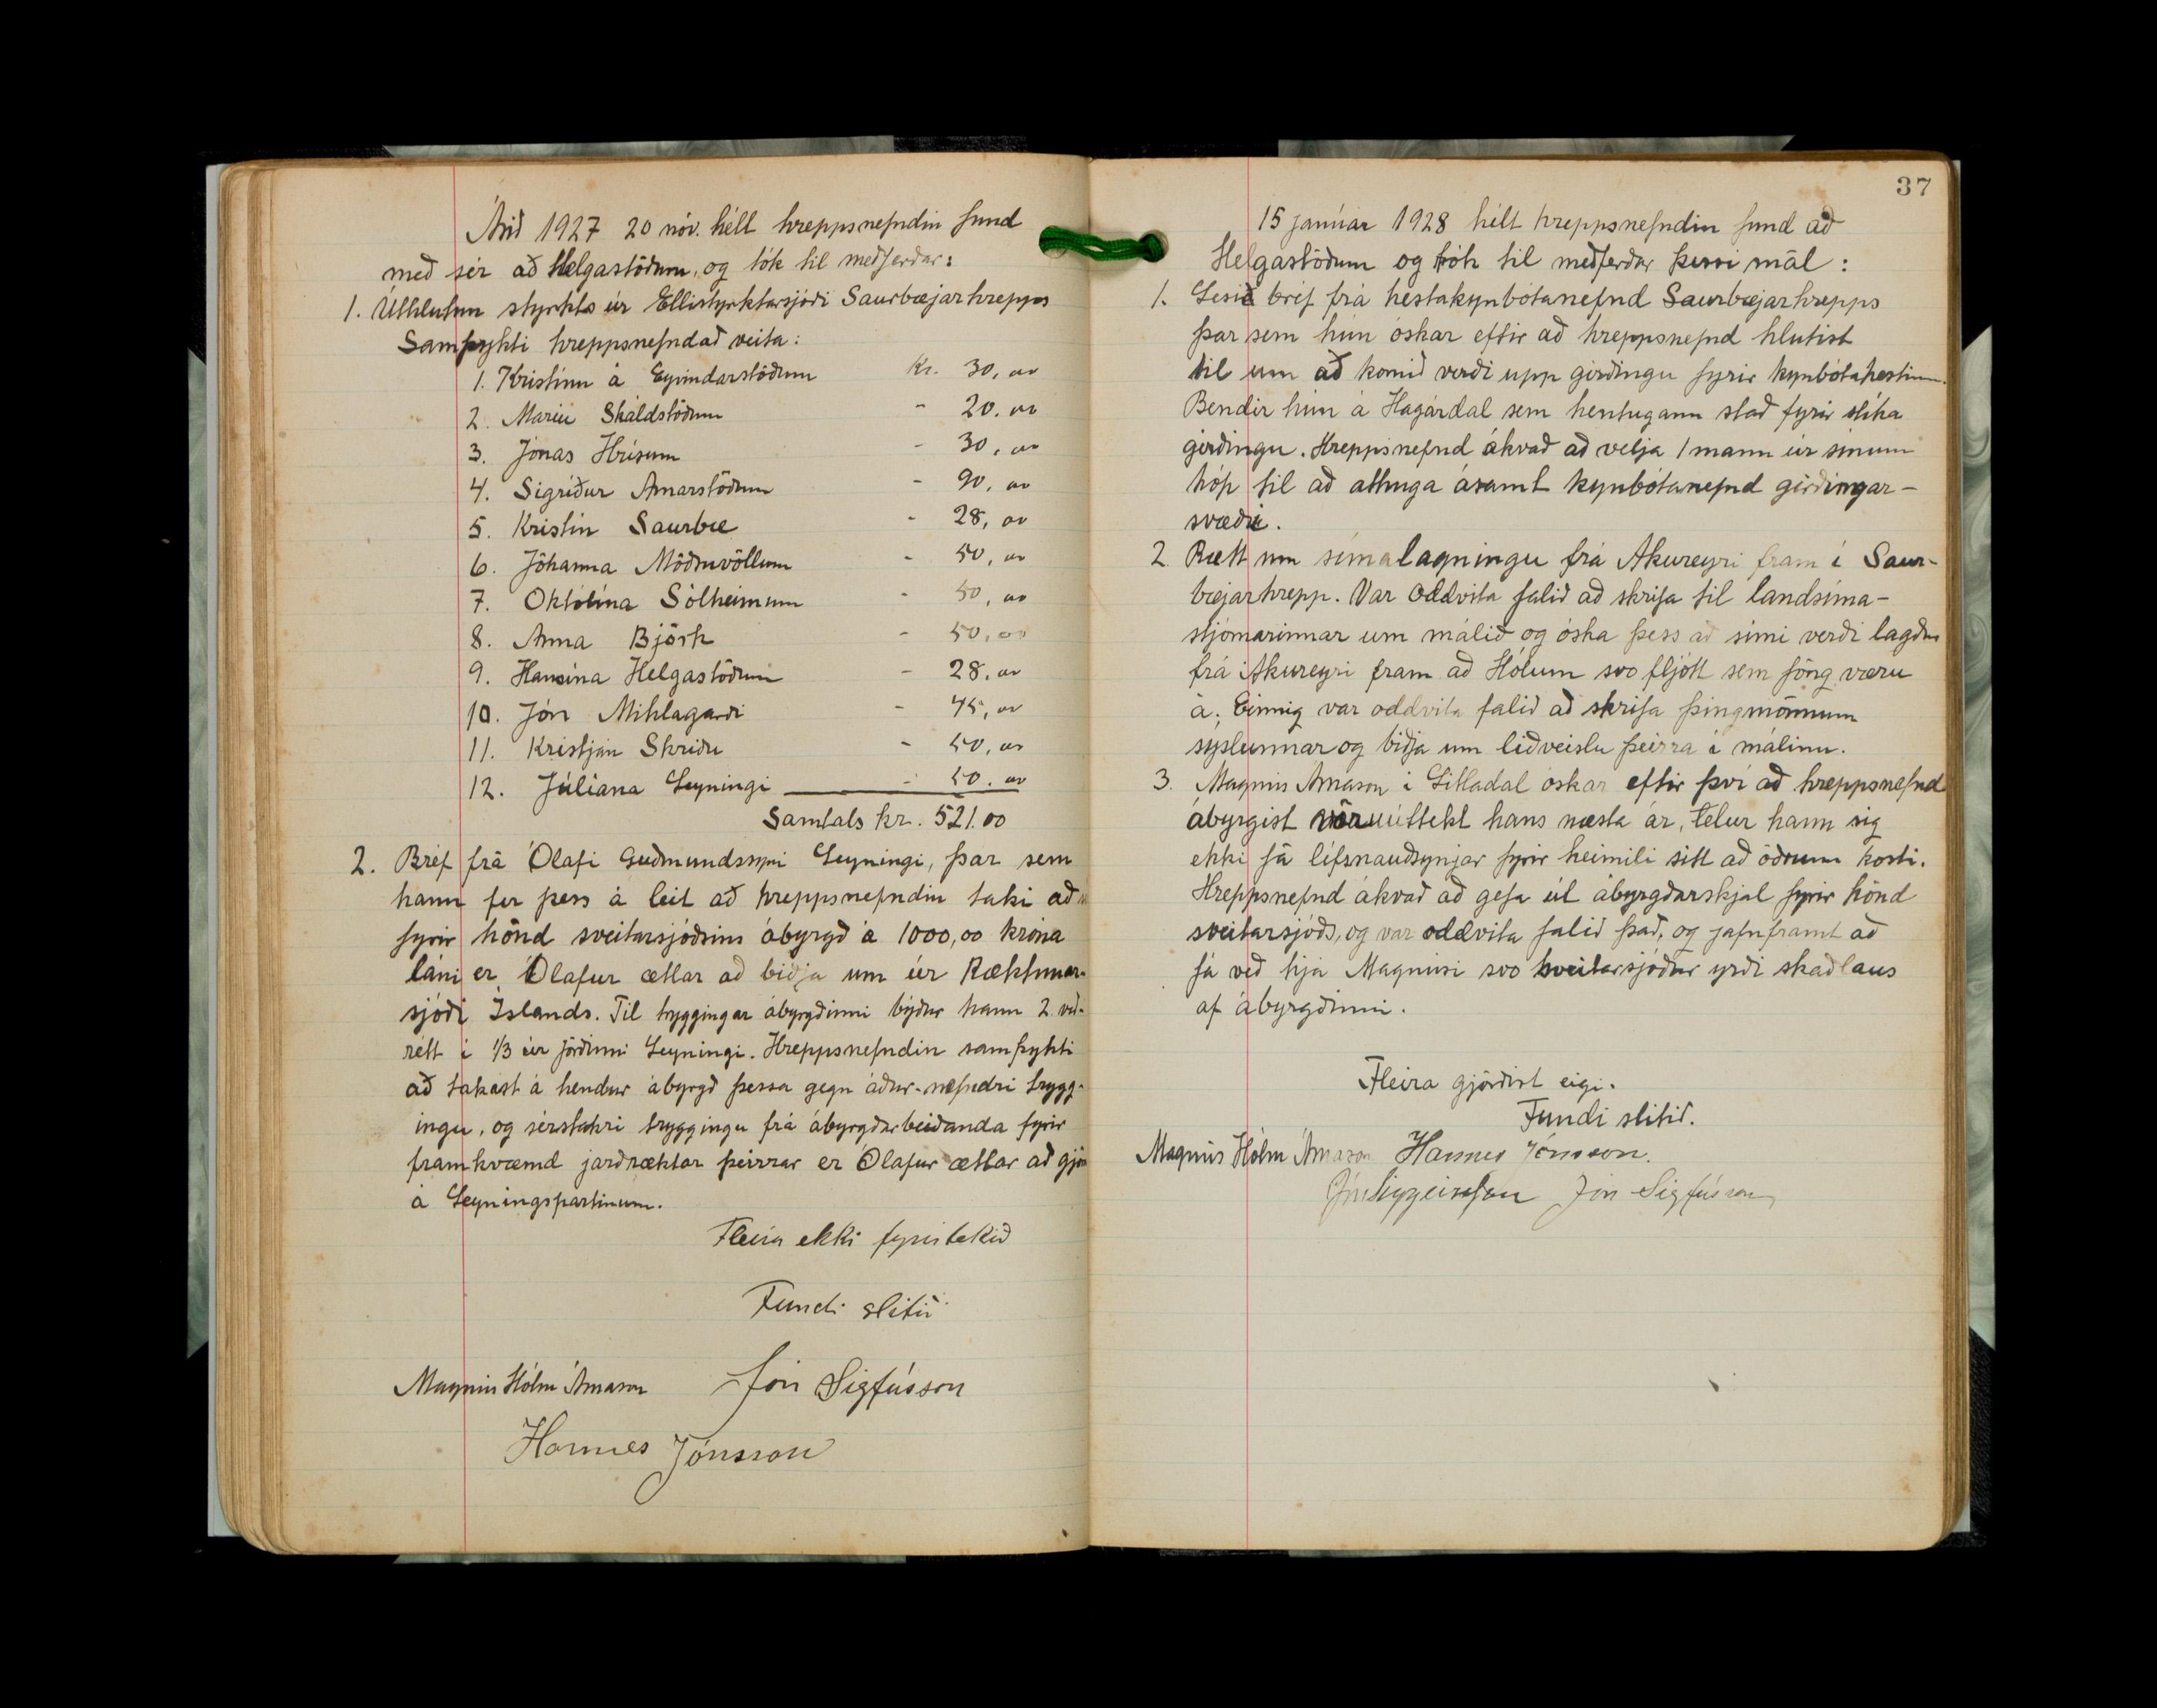 Árið 1927 20 nóv. hélt hreppsnefndin fund
með sér að Helgastöðum, og tók til meðferðar:
1. Úthlutun styrkts úr Ellistyrktarsjóði Saurbæjarhrepps
Samþykti hreppsnefnd að veita:
1. Kristinn á Eyvindarstöðum Kr. 30,00
2. Maríu Skáldstöðum - 20.00
3. Jónas Hrísum - 30,00
4. Sigríður Arnarstöðum - 90,00
5. Kristín Saurbæ - 28,00
6. Jóhanna Möðruvöllum - 50,00
7. Októlína Sólheimum - 50,00
8. Anna Björk - 50,00
9. Hansína Helgastöðum - 28,00
10. Jón Miklagarði - 45,00
11. Kristján Skriðu - 50,00
12. Júlíana Leyningi - 50.00
Samtals kr. 521.00
2. Bréf frá Ólafi Guðmundssyni Leyningi, þar sem
hann fer þess á leit að hreppsnefndin taki að
fyrir hönd sveitarsjóðsins ábyrgð á 1000,00 króna
láni er Ólafur ætlar að biðja um úr Ræktunar-
sjóði Íslands. Til tryggingar ábyrgðinni býður hann 2. veð-
rétt í 1/3 úr jörðinni Leyningi. Hreppsnefndin samþykti
að takast á hendur ábyrgð þessa gegn áður-nefndri trygg-
ingu, og sérstakri tryggingu frá ábyrgðarbeiðanda fyrir
framkvæmd jarðræktar þeirrar er Ólafur ætlar að gjöra
á Leyningspartinum.
Fleira ekki fyrirtekið
Fundi slitið
Magnús Hólm Árnason Jón Sigfússon
Hannes Jónsson
37
15 janúar 1928 hélt hreppsnefndin fund að
Helgastöðum og tók til meðferðar þessi mál:
1. Lesið bréf frá hestakynbótanefnd Saurbæjarhrepps
þar sem hún óskar eftir að hreppsnefnd hlutist
til um að komið verði upp girðingu fyrir kynbótahestinn.
Bendir hún á Hagárdal sem hentugann stað fyrir slíka
girðingu. Hreppsnefnd ákvað að velja 1 mann úr sínum
hóp til að athuga ásamt kynbótanefnd girðingar-
svæði.
2. Rætt um símalagningu frá Akureyri fram í Saur-
bæjarhrepp. Var oddvita falið að skrifa til landsíma-
stjórnarinnar um málið og óska þess að sími verði lagður
frá Akureyri fram að Hólum svo fljótt sem föng væru
á. Einnig var oddvita falið að skrifa þingmönnum
sýslunnar og biðja um liðveislu þeirra í málinu.
3. Magnús Árnason í Litladal óskar eftir því að hreppsnefnd
ábyrgist vöruúttekt hans næsta ár, telur hann sig
ekki fá lífsnauðsynjar fyrir heimili sitt að öðrum kosti.
Hreppsnefnd ákvað að gefa út ábyrgðarskjal fyrir hönd
sveitarsjóðs, og var oddvita falið það, og jafnframt að
fá veð hjá Magnúsi svo sveitarsjóður yrði skaðlaus
af ábyrgðinni.
Fleira gjörðist eigi.
Fundi slitið.
Magnús Hólm Árnason Hannes Jónsson.
Jón Siggeirsson Jón Sigfússon